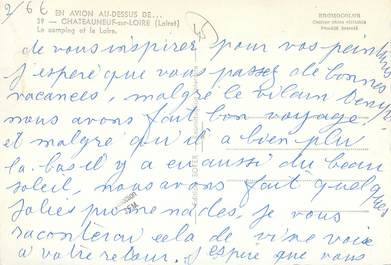 2/66
EN AVION AU-DESSUS DE...
39 — CHATEAUNEUF-sur-LOIRE (Loiret)
Le camping et la Loire.
de vous inspirer pour vos
j'espère que vous passez de bonnes
vacances, malgré le vilain
nous avons fait bon voyage
et malgré qu'il a bien plu
là-bas il y a eu aussi du beau
soleil, nous avons fait quelques
jolies promenades, je vous
raconterai cela de vive voix
à votre retour. J'espère que vous